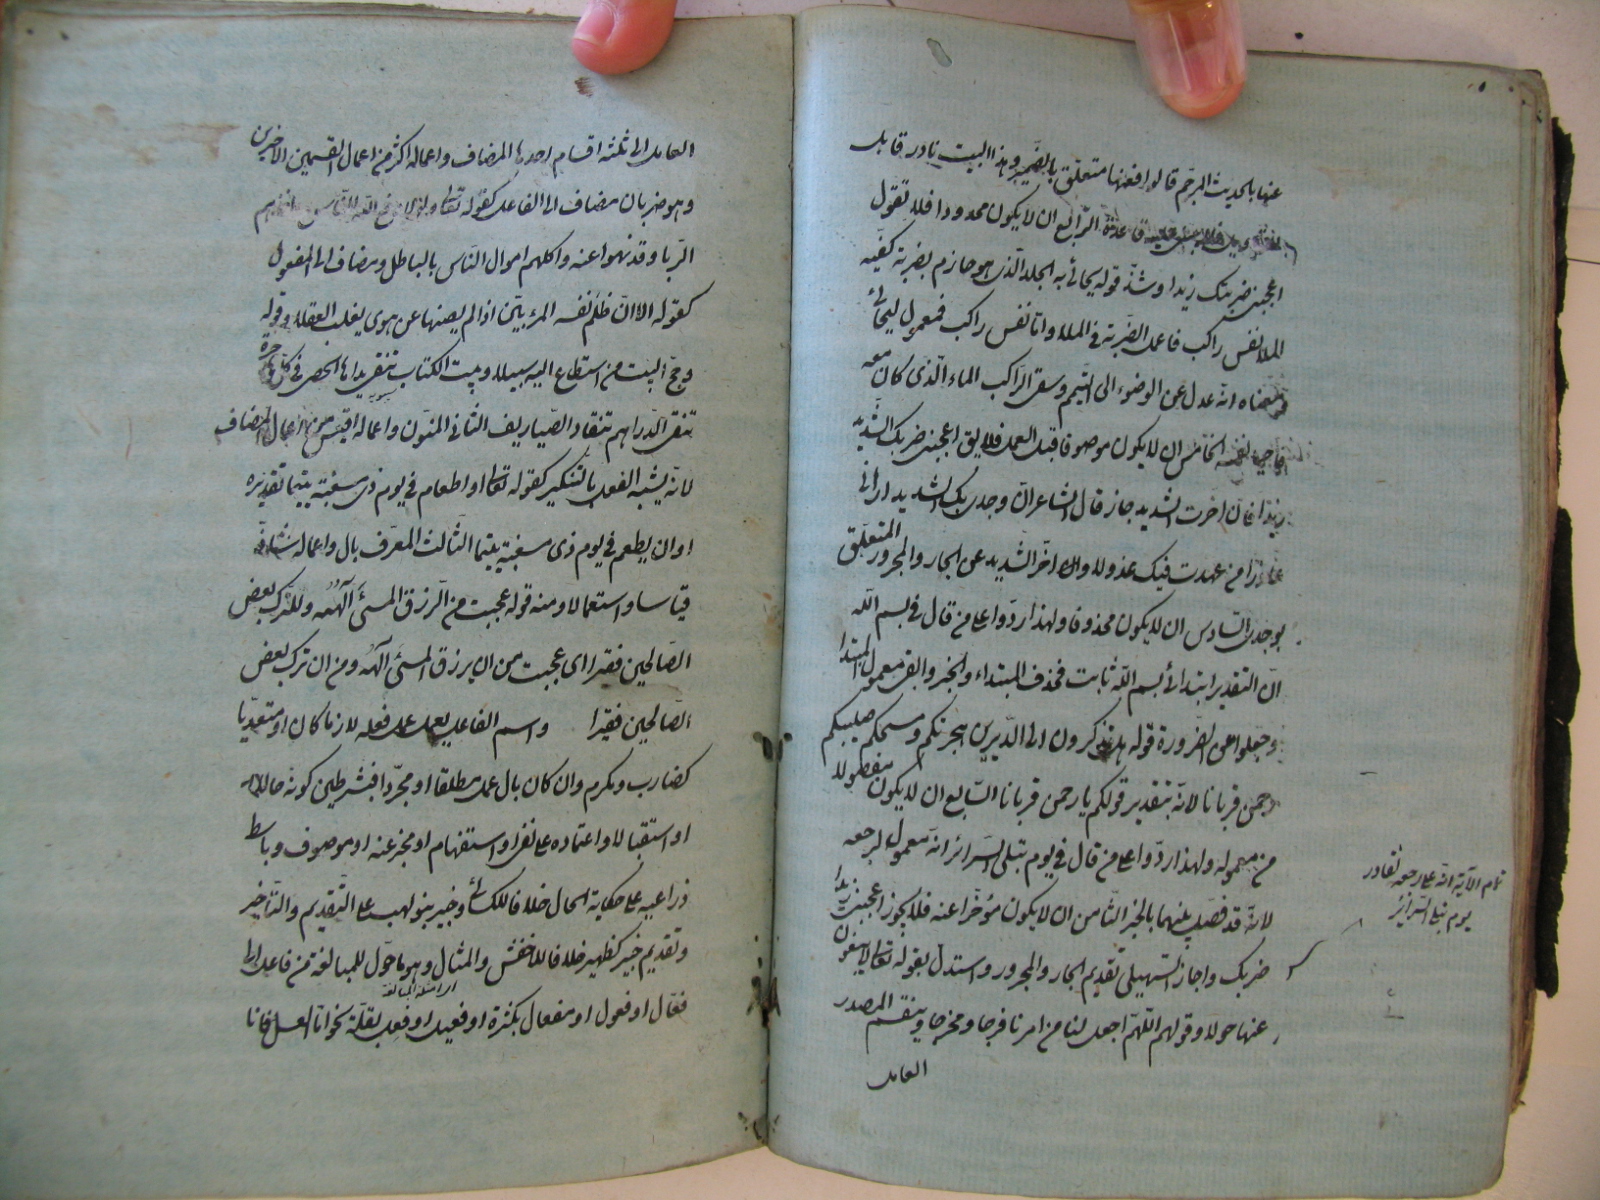 عنها بالحديث المرجم قالوا فعنها متعلق بالضمير وهذا البيت نادر قابل
قاعدة الرابع ان لا يكون محدودا فلا تقول
اعجبنى ضربتك زيدا وشذ قوله يحائى به الجلد الذى هو حازم بضربة كفيه
الملا نفس راكب فاعمل الضربة فى الملا واما نفس راكب فمعمول ليحائى
ومعناه انه عدل عن الوضوء الى التيمم وسقى الراكب الماء الذى كان معه
فاحيا نفسه الخامس ان لا يكون موصوفا قبل العمل فلا يق اعجبنى ضربك الشديد
زيدا فان اخرت الشديد جاز قال الشاعر ان وجدى بك الشديد ارانى
عاذرا من عهدت فيك عذولا واخر الشديد عن الجار والمجرور المتعلق
بوجدى السادس ان لا يكون محذوفا ولهذا ردوا على من قال فى بسم الله
ان التقدير ابتدائى بسم الله ثابت فحذف المبتداء والخبر وابقى معمول المبتدا
وجعلوا من الضرورة قوله هل تذكرون الى الديرين هجرتكم ومسحكم صليبكم
رحمن قربانا لانه بتقدير قولكم يا رحمن قربانا السابع ان لا يكون مفصولا
من معموله ولهذا ردوا على من قال فى يوم تبلى السرائر انه معمول لرجعه
لانه قد فصل بينهما بالخبر الثامن ان لا يكون مؤخرا عنه فلا يجوز اعجبنى زيدا
ضربك واجاز السهيلى تقديم الجار والمجرور واستدل بقوله تعالى لا يبغون
عنها حولا وقولهم اللهم اجعل لنا من امرنا فرجا ومخرجا وينقسم المصدر
العامل
تمام الآية انه على رجعه لقادر
يوم تبلى السرائر
العامل الى ثلثه اقسام احدها المضاف واعماله اكثر من اعمال القسمين الاخيرين
وهو ضربان مضاف الى الفاعل كقوله تعالى ولولا دفع الله الناس واخذهم
الربا وقد نهوا عنه واكلهم اموال الناس بالباطل ومضاف الى المفعول
كقوله الا ان ظلم نفسه المرء بين اذا لم يصنها عن هوى يغلب العقلا وقوله
وحج البيت من استطاع اليه سبيلا وبيت الكتاب تنفى يداها الحصى فى كل هاجرة
سيبويه
تنفى الدراهم تنقاد الصياريف الثانى المنون واعماله اقيس من اعمال المضاف
لانه يشبه الفعل بالتنكير كقوله تعالى او اطعام فى يوم ذى مسغبة يتيما تقديره
او ان يطعم فى يوم ذى مسغبة يتيما الثالث المعرف بال واعماله شاذ
قياسا واستعمالا ومنه قوله عجبت من الرزق المسئ آلهه وللترك بعض
الصالحين فقيرا اى عجبت من ان يرزق المسئ آلهه ومن ان ترك بعض
الصالحين فقيرا واسم الفاعل يعمل عمل فعله لازما كان او متعديا
كضارب ومكرم وان كان بال عمل مطلقا او مجردا فبشرطين كونه حالا
او استقبالا واعتماده على نفى او استفهام او مخبر عنه او موصوف وباسط
ذراعيه على حكاية الحال خلافا للكسائى وخبير بنو لهب على التقديم والتاخير
وتقديم خبير كظهير خلافا للاخفش والمثال وهو ما حول للمبالغة من فاعل الى
اى امثلة المبالغة
فعال او فعول او مفعال بكثرة او فعيل او فعل بقلة نحو اما العسل فانا